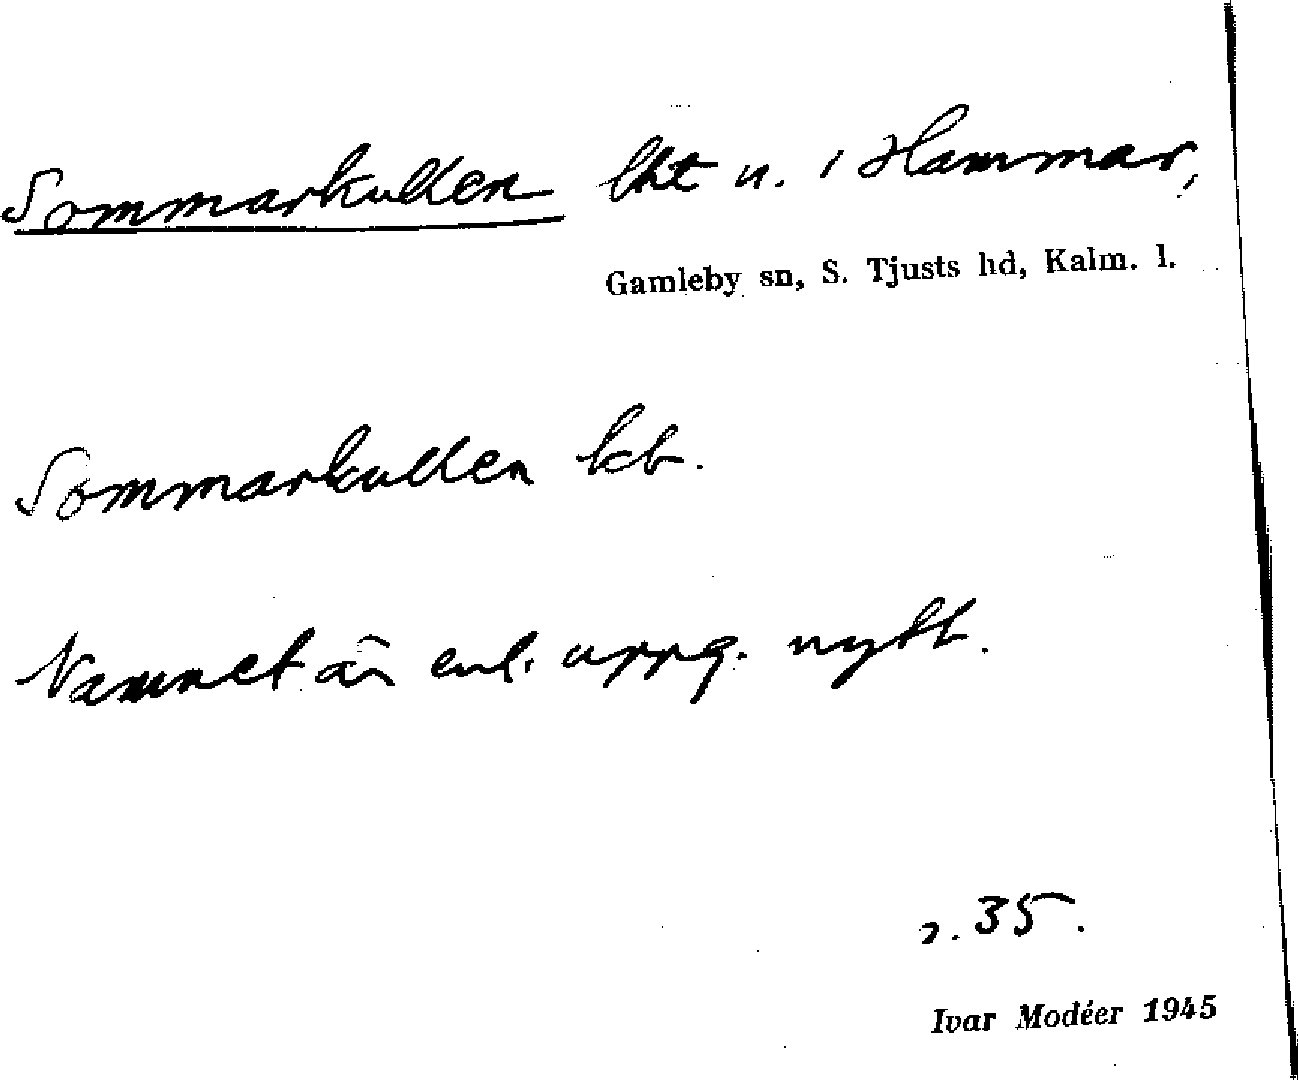 Sommarkullen lht u. i Hammar,
Gamleby sn, S. Tjusts hd, Kalm. l.
Sommarkullen kb.
Namnet är enl. uppg. nytt.
s. 35.
Ivar Modéer 1945